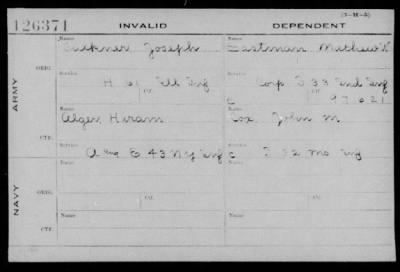 (3-11-3)
126371 INVALID DEPENDENT
Name Name
Faulkner Joseph Eastman Mathew W
ORIG. Service Service
H 61 Ill Inf Corp I 33 Ind Inf
Ctf. Ctf.
C 97621
ARMY
Name Name
Alger Hiram Cox John M
CTF. Service Service
A E 43 N.Y. Inf C I 32 Mo Inf
Name Name
ORIG. Service Service
Ctf. Ctf.
NAVY
Name Name
CTF. Service Service